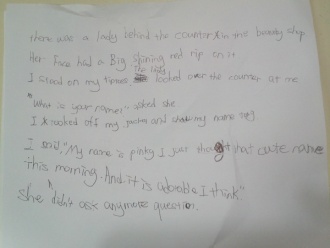 there was a lady behind the counter in the beauty shop
Her Face had a Big shining red rip on it
I stood on my tiptoes The lady looked over the counter at me
"what is your name" asked she
I looked off my and my name tag
I said "My name is pinky I just thought that cute name
this morning. And it is adorable I think"
she didn't ask anymore question.